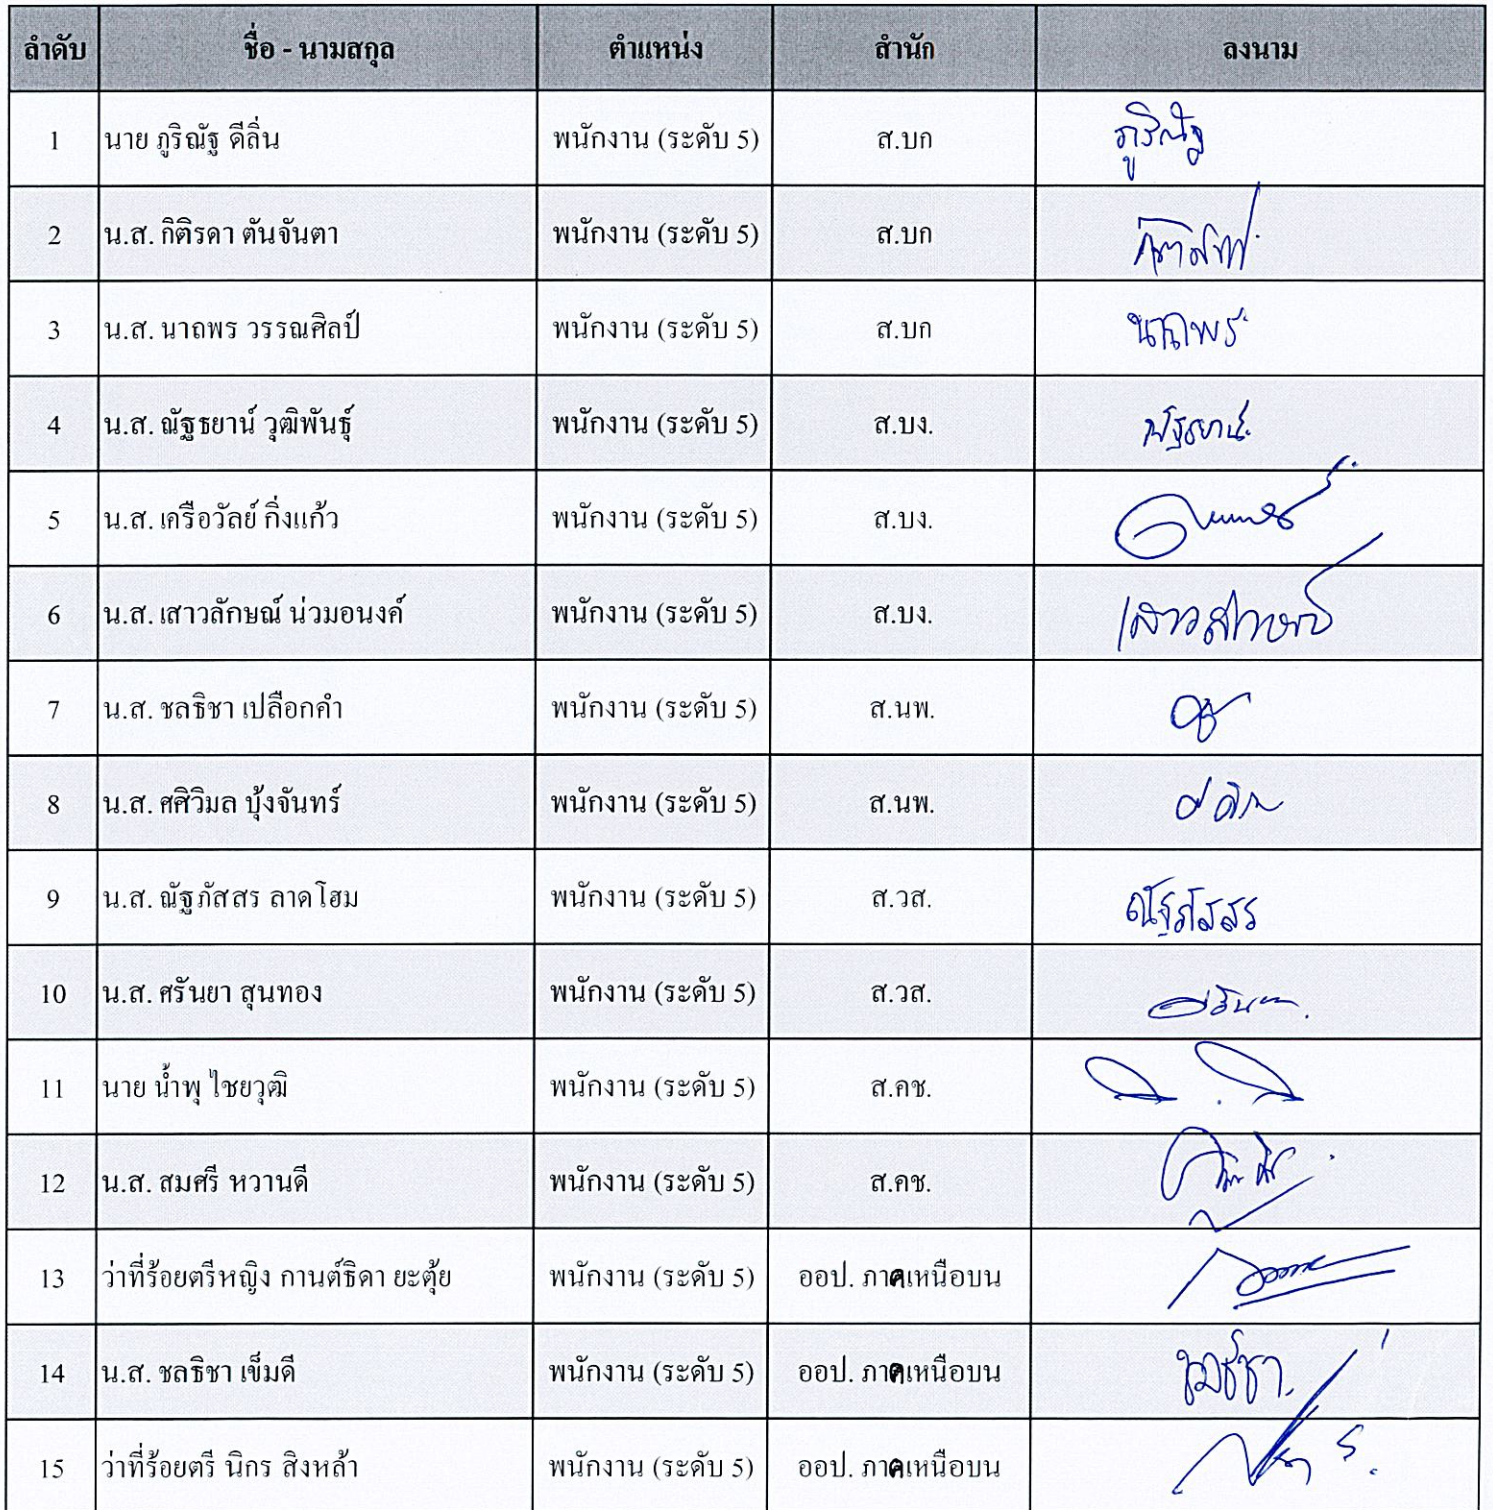 ลำดับ ชื่อ - นามสกุล ตำแหน่ง สำนัก ลงนาม
1 นาย ภูริณัฐ ดีลิ่น พนักงาน (ระดับ 5) ส.บก ภูริณัฐ
2 น.ส. กิติรดา ตันจันตา พนักงาน (ระดับ 5) ส.บก
3 น.ส. นาถพร วรรณศิลป์ พนักงาน (ระดับ 5) ส.บก นาถพร
4 น.ส. ณัฐธยาน์ วุฒิพันธุ์ พนักงาน (ระดับ 5) ส.บง. ณัฐธยาน์
5 น.ส. เครือวัลย์ กิ่งแก้ว พนักงาน (ระดับ 5) ส.บง.
6 น.ส. เสาวลักษณ์ น่วมอนงค์ พนักงาน (ระดับ 5) ส.บง. เสาวลักษณ์
7 น.ส. ชลธิชา เปลือกคำ พนักงาน (ระดับ 5) ส.นพ.
8 น.ส. ศศิวิมล บุ้งจันทร์ พนักงาน (ระดับ 5) ส.นพ.
9 น.ส. ณัฐภัสสร ลาดโฮม พนักงาน (ระดับ 5) ส.วส. ณัฐภัสสร
10 น.ส. ศรันยา สุนทอง พนักงาน (ระดับ 5) ส.วส. ศรันยา
11 นาย น้ำพุ ไชยวุฒิ พนักงาน (ระดับ 5) ส.คช.
12 น.ส. สมศรี หวานดี พนักงาน (ระดับ 5) ส.คช.
13 ว่าที่ร้อยตรีหญิง กานต์ธิดา ยะตุ้ย พนักงาน (ระดับ 5) ออป. ภาคเหนือบน
14 น.ส. ชลธิชา เข็มดี พนักงาน (ระดับ 5) ออป. ภาคเหนือบน
15 ว่าที่ร้อยตรี นิกร สิงหล้า พนักงาน (ระดับ 5) ออป. ภาคเหนือบน